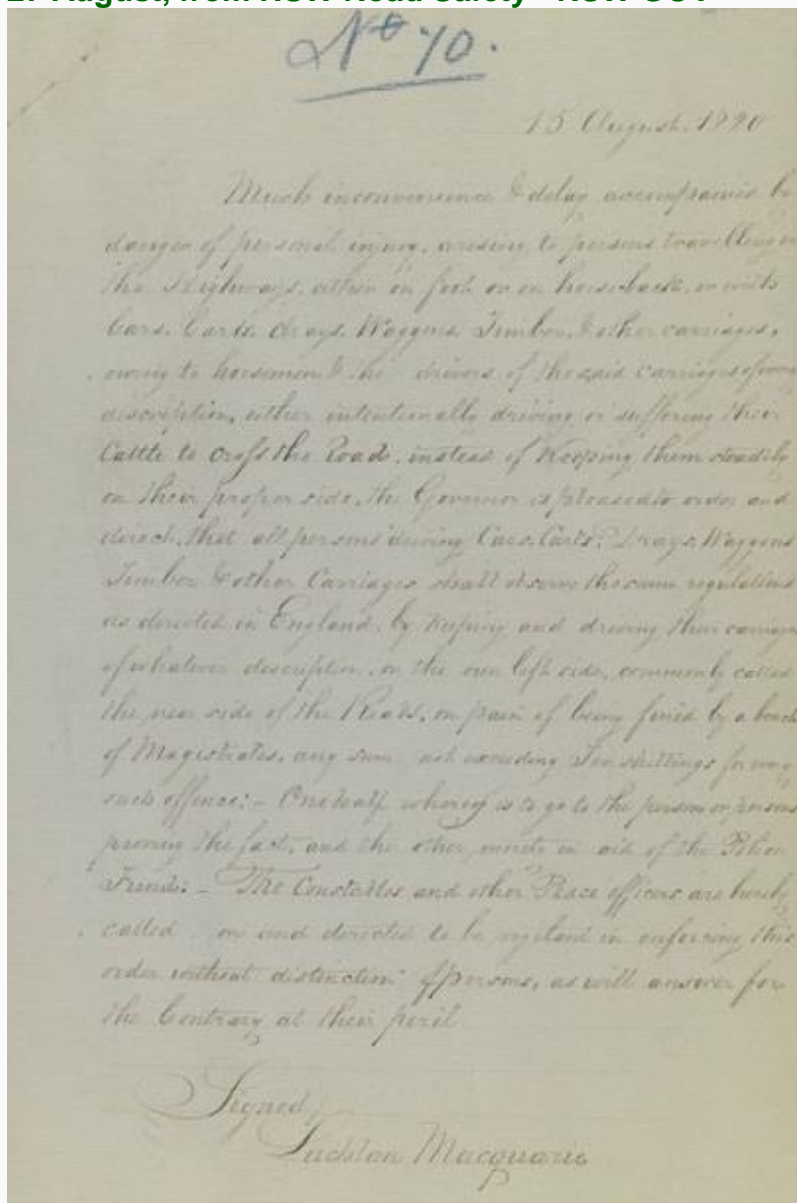 27 August, from NSW Road Safety - NSW GOV
No 70.
15 August 1820
Much inconvenience & delay, accompanied by
danger of personal injury, arising to persons travelling on
the Highways, either on foot or on horseback, or with
Cars, Carts, drays, Waggons, Timber, & other carriages,
owing to horsemen & the drivers of the said carriages of every
discription, either intentionally driving or suffering their
Cattle to cross the Roads, instead of Keeping them steadily
on their proper side, the Governor is pleased to order and
direct, that all persons driving Cars, Carts, Drays, Waggons
Timber & other Carriages shall observe the same regulations
as directed in England, by Keeping and driving their carriages
of whatever description, on the own left side, commonly called
the near side of the Roads, on pain of being fined by a bench
of Magistrates, any sum not exceeding Ten shillings for every
such offence:- One half whereof is to go to the person or persons
proving the fact, and the other in aid of the Police
Funds. - The Constables and other Peace officers are hereby
called on and directed to be vigilant in enforcing this
order without distinction of persons, as will answer for
the Contrary at their peril
Signed/
Lachlan Macquarie